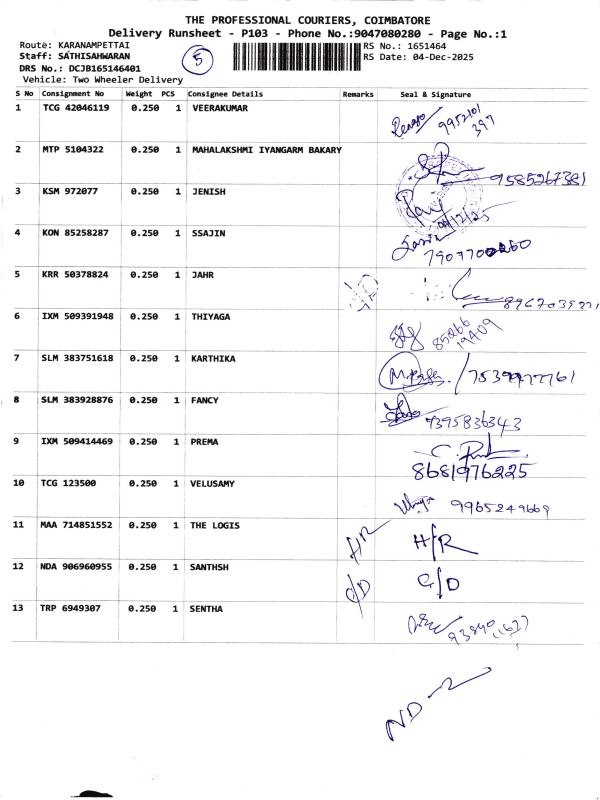 THE PROFESSIONAL COURIERS, COIMBATORE
Delivery Runsheet - P103 - Phone No.:9047080280 - Page No.:1
Route: KARANAMPETTAI
Staff: SATHISAHWARAN
DRS No.: DCJB165146401
Vehicle: Two Wheeler Delivery
5
RS No.: 1651464
RS Date: 04-Dec-2025
S No Consignment No Weight PCS Consignee Details Remarks Seal & Signature
1 TCG 42046119 0.250 1 VEERAKUMAR
9952101
397
2 MTP 5104322 0.250 1 MAHALAKSHMI IYANGARM BAKARY
9585267381
3 KSM 972077 0.250 1 JENISH
4 KON 85258287 0.250 1 SSAJIN
7907700260
5 KRR 50378824 0.250 1 JAHR
6 IXM 509391948 0.250 1 THIYAGA
85266
19409
7 SLM 383751618 0.250 1 KARTHIKA
8 SLM 383928876 0.250 1 FANCY
7395836343
9 IXM 509414469 0.250 1 PREMA
8681976225
10 TCG 123500 0.250 1 VELUSAMY
9965249669
11 MAA 714851552 0.250 1 THE LOGIS H/R H/R
12 NDA 906960955 0.250 1 SANTHSH C/D C/D
13 TRP 6949307 0.250 1 SENTHA
ND-2